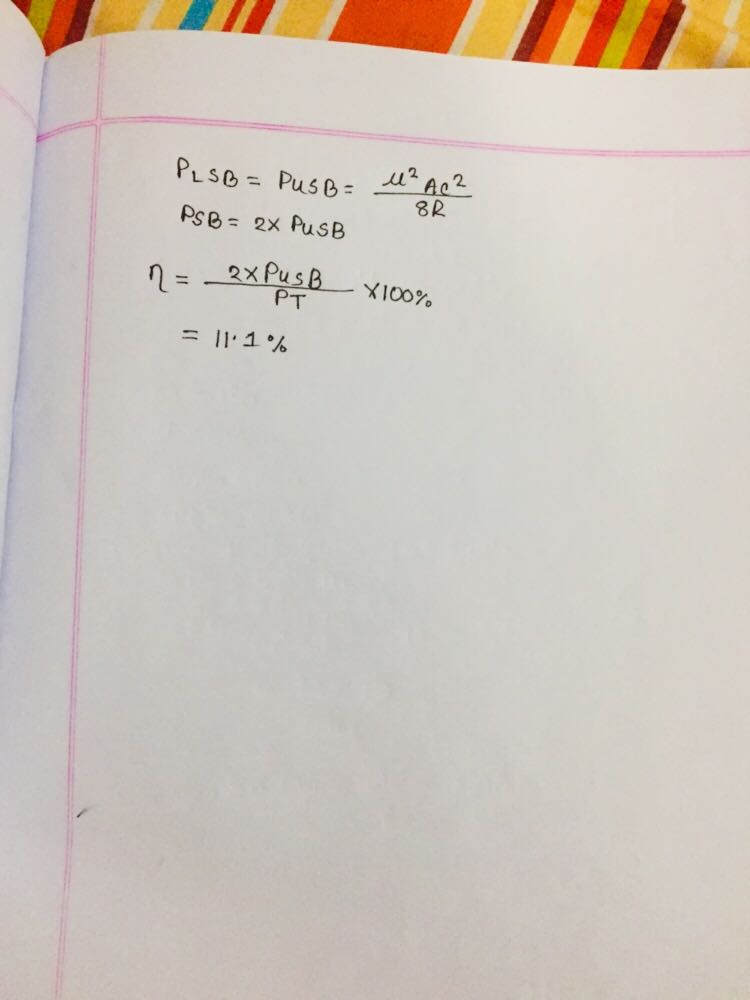 PLSB = PUSB = μ² Ac² / 8R
PSB = 2x PUSB
η = 2xPUSB / PT x100%
= 11.1%